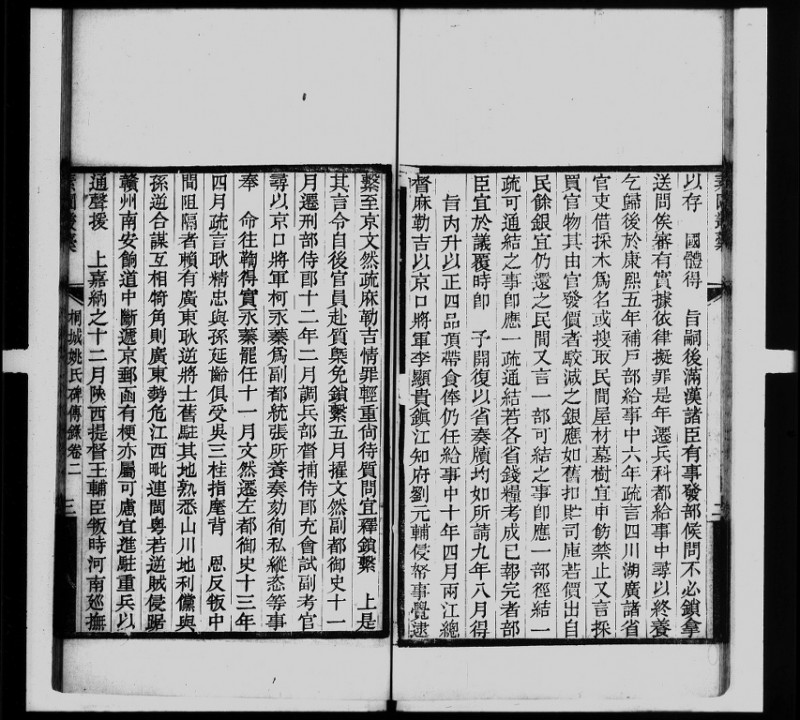 以存　國體得　旨嗣後滿漢諸臣有事發部候問不必鎖拿
送問俟審有實據依律擬罪是年遷兵科都給事中尋以終養
乞歸後於康熙五年補戶部給事中六年疏言四川湖廣諸省
官吏借採木爲名或搜取民間屋材墓樹宜申飭禁止又言採
買官物其由官發價者較減之銀應如舊扣貯司庫若價出自
民餘銀宜仍還之民間又言一部可結之事即應一部徑結一
疏可通結之事卽應一疏通結若各省錢糧考成已報完者部
臣宜於議覆時卽　予開復以省奏牘均如所請九年八月得
旨內升以正四品頂帶食俸仍任給事中十年四月兩江總
督麻勒吉以京口將軍李顯貴鎮江知府劉元輔侵帑事覺逮
繫至京文然疏麻勒吉情罪輕重尙待質問宜釋鎖繫　上是
其言令自後官員赴質槩免鎖繫五月擢文然副都御史十一
月遷刑部侍郎十二年二月調兵部督捕侍郎充會試副考官
尋以京口將軍柯永蓁爲副都統張所養奏劾徇私縱恣等事
奉　命往鞫得實永蓁罷任十一月文然遷左都御史十三年
四月疏言耿精忠與孫延齡俱受吳三桂指麾背　恩反叛中
間阻隔者賴有廣東耿逆將士舊駐其地熟悉山川地利儻與
孫逆合謀互相犄角則廣東勢危江西毗連閩粵若逆賊侵踞
贛州南安餉道中斷遞京郵函有梗亦屬可慮宜進駐重兵以
通聲援　上嘉納之十二月陝西提督王輔臣叛時河南廵撫
桐城姚氏碑傳錄卷二
三